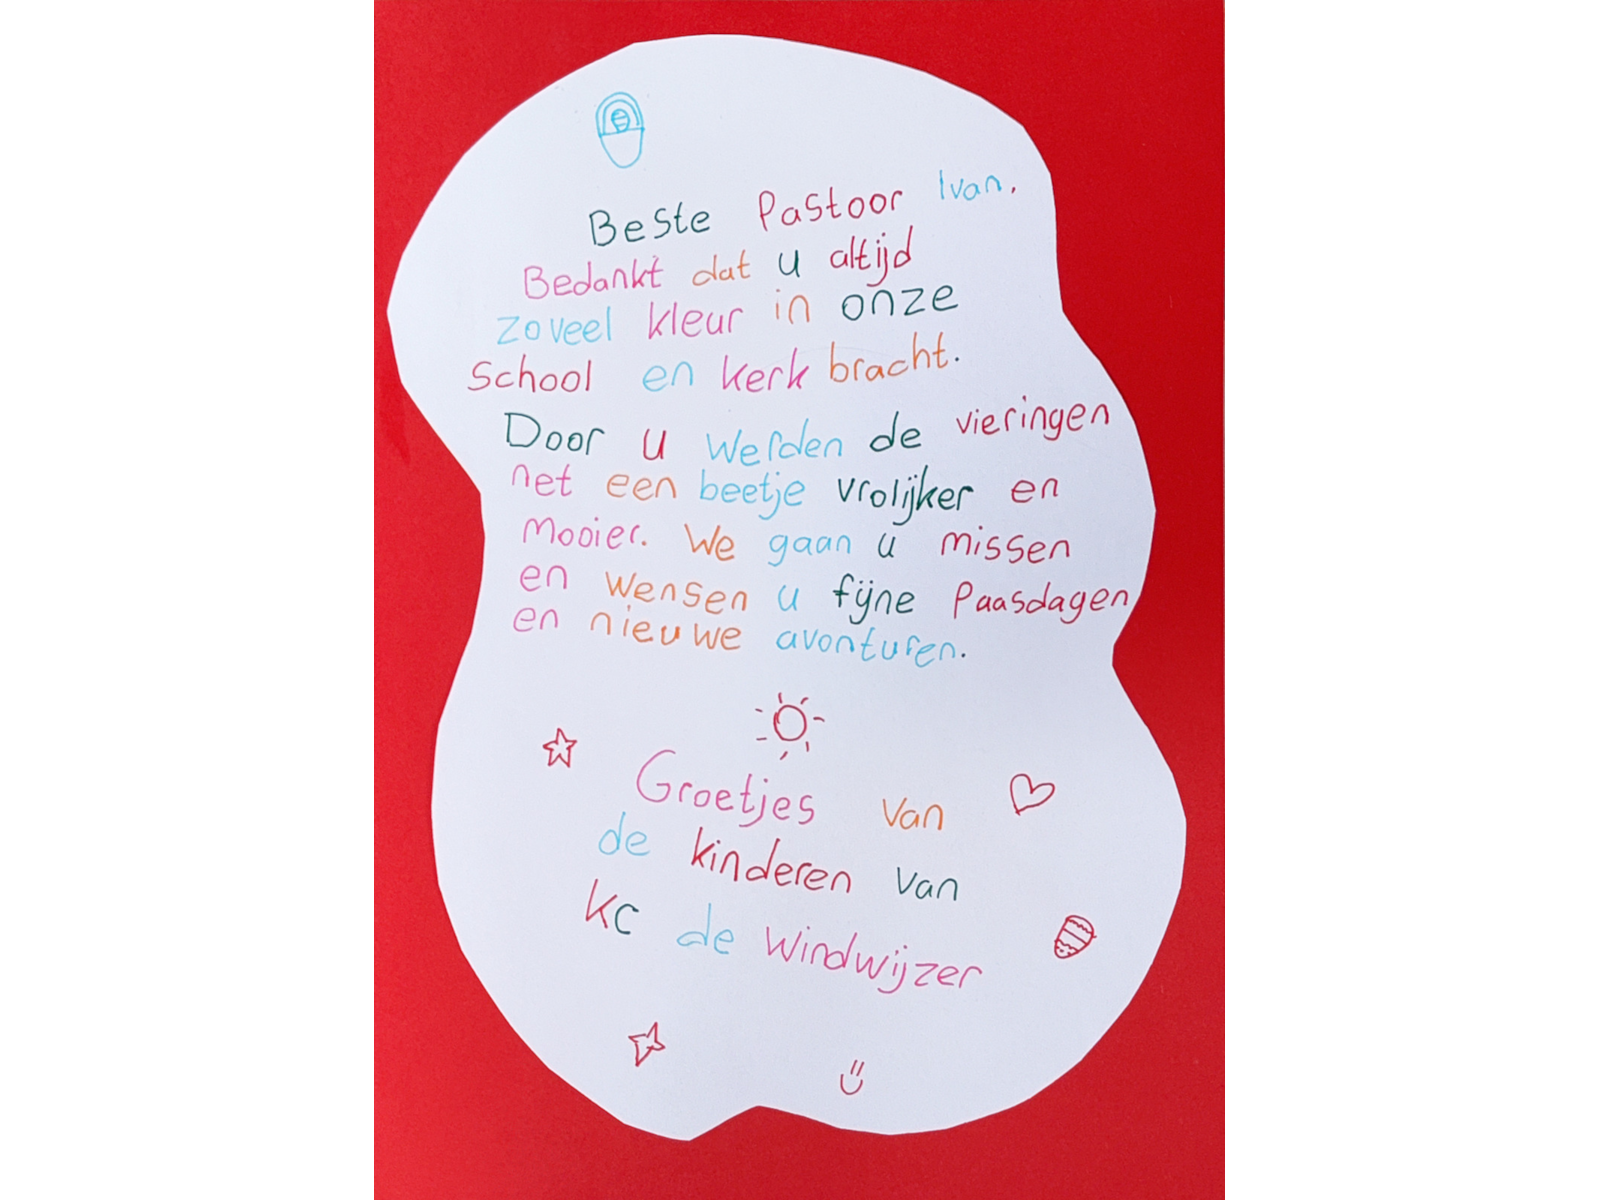 Beste Pastoor Ivan.
Bedankt dat u altijd
zoveel kleur in onze
School en kerk bracht.
Door u werden de vieringen
net een beetje vrolijker en
mooier. We gaan u missen
en wensen u fijne Paasdagen
en nieuwe avonturen.
Groetjes van
de kinderen van
kc de windwijzer